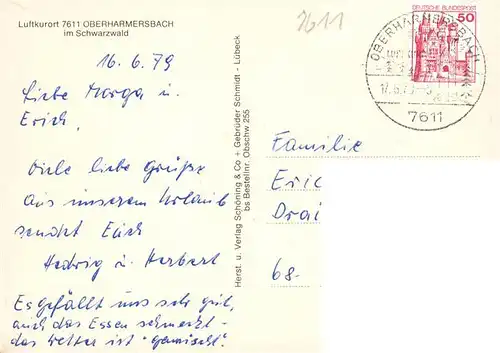 Luftkurort 7611 OBERHARMERSBACH
im Schwarzwald
7611
DEUTSCHE BUNDESPOST
50
OBERHARMERSBACH
7611
16.6.79
Liebe Marga u.
Erich,
Viele liebe Grüße
aus unserem Urlaub
sendet Euch
Hedwig u. Herbert
Es gefällt uns sehr gut,
auch das Essen schmeckt -
das Wetter ist "gemischt".
Herst. u. Verlag Schöning & Co + Gebrüder Schmidt - Lübeck
bs Bestellnr. Obschw 255
Familie
Eric
Drai
68-